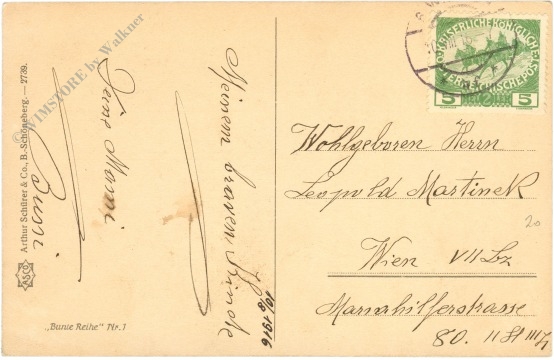 KAISERLICHE KÖNIGLICHE
ÖSTERREICHISCHE POST
5 5
Wohlgeboren Herrn
Leopold Martinek
Wien VII Bz
Mariahilferstrasse
80. II St III Tz
20
Meinem braven
Deine Mami
Bussi
10/ 1916
WIMSTORE by Walkner
Arthur Schürer & Co., B.-Schöneberg. — 2739.
ASCO
„Bunte Reihe" Nr. 1